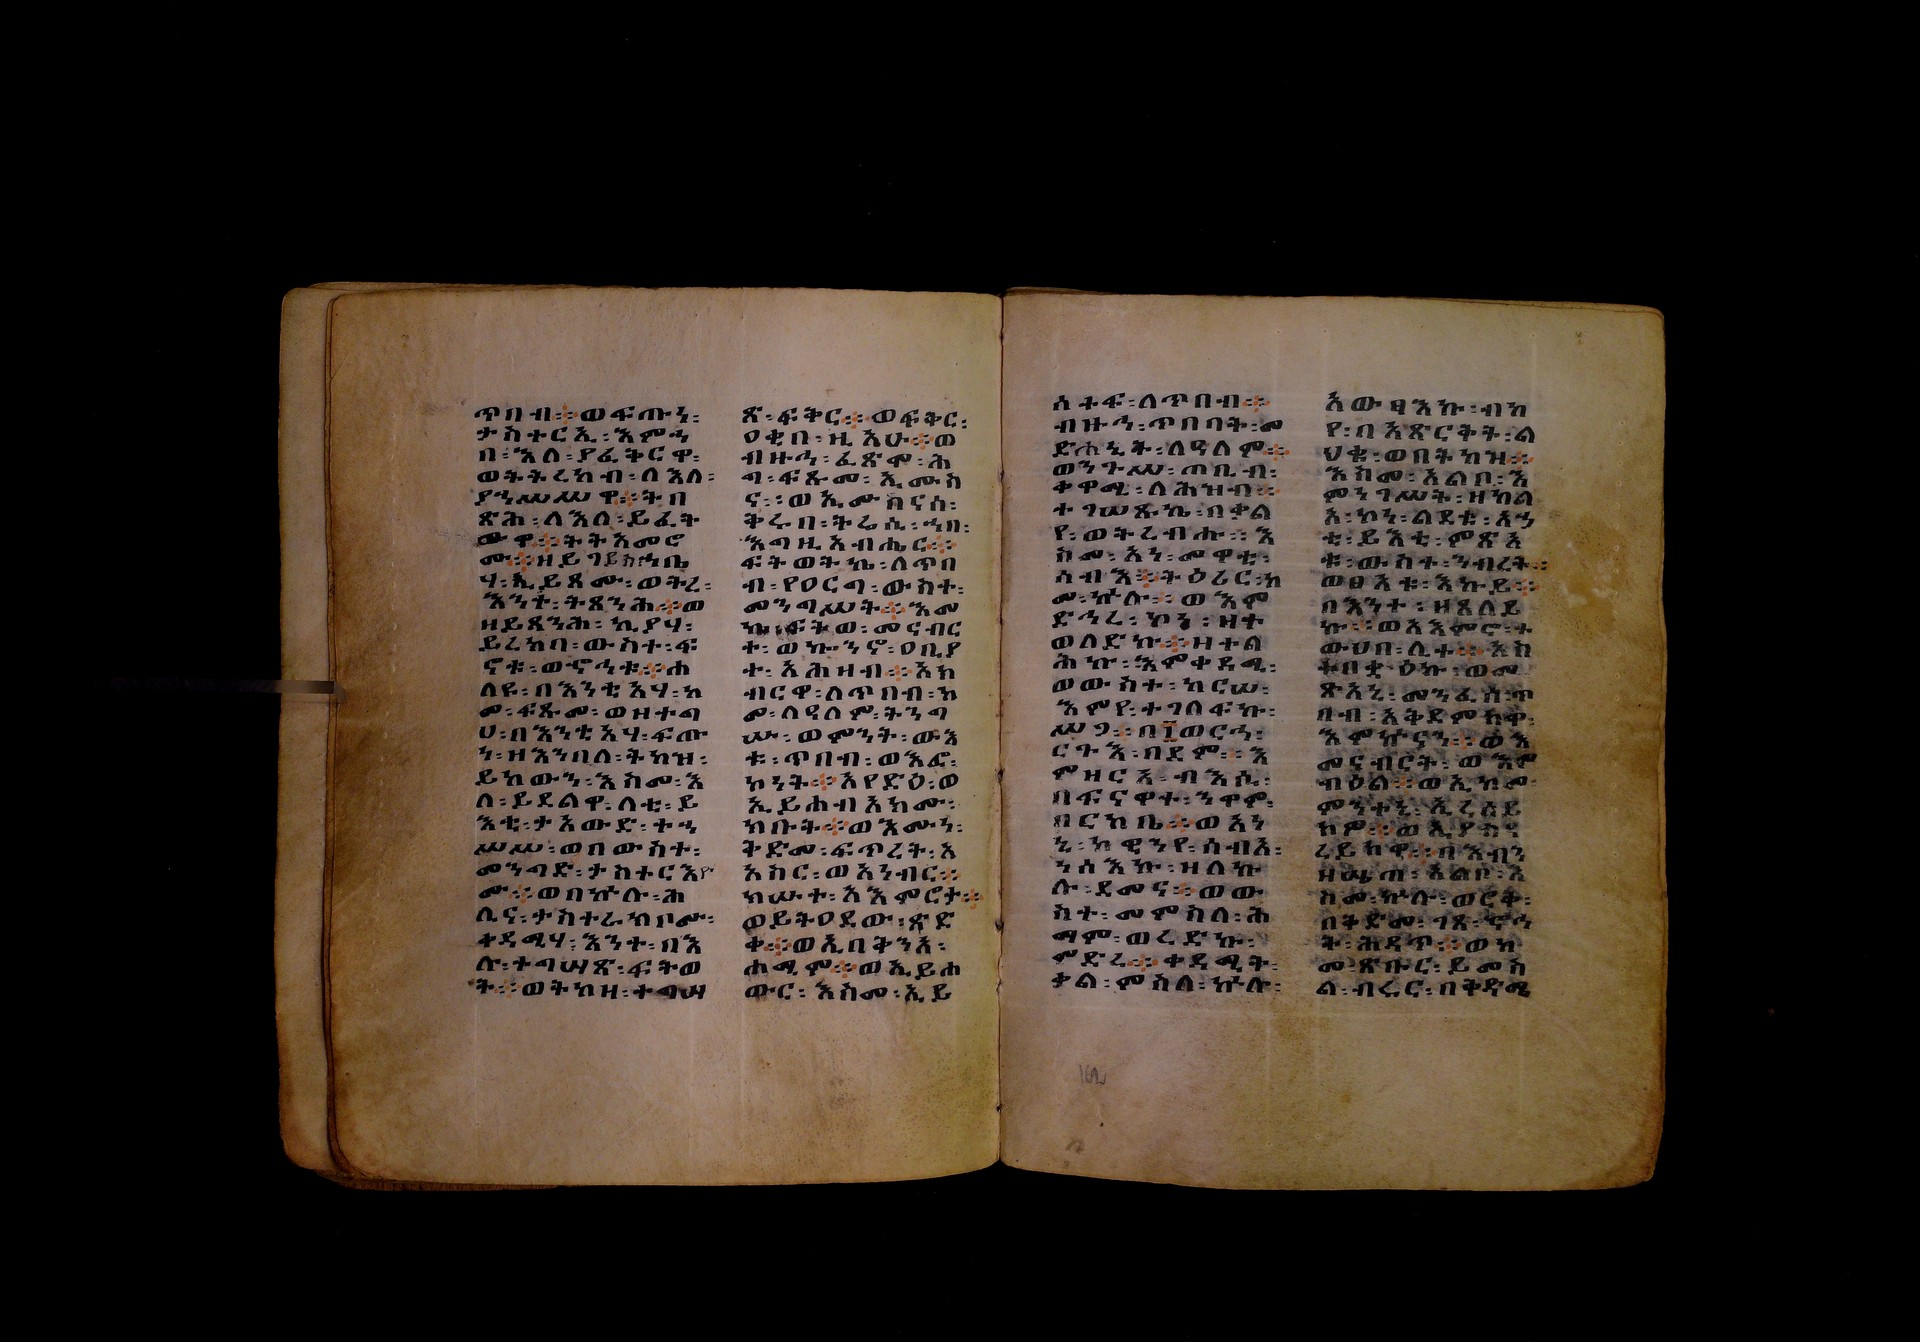 ጥበብ፨ወፍጡነ፡
ታስተርኢ፡እምኀ
በ፡እለ፡ያፈቅርዋ፡
ወትትረከብ፡ለእለ፡
ያኀሠሥዋ፨ትበ
ጽሕ፡ለእለ፡ይፈት
ውዋ፨ትትአመሮ
ሙ፨ዘይገይስኀቤ
ሃ፡ኢይጻሙ፡ወትረ፡
እንተ፡ትጸንሕ፨ወ
ዘይጸንሕ፡ኪያሃ፡
ይረከባ፡ውስተ፡ፍ
ኖቱ፡ወኖኅቱ፨ሐ
ልዩ፡በእንቲአሃ፡ከ
መ፡ፍጹመ፡ወዘተግ
ሀ፡በእንቲአሃ፡ፍጡ
ነ፡ዘእንበለ፡ትካዝ፡
ይከውን፡እስመ፡እ
ለ፡ይደልዋ፡ለቲ፡ይ
እቲ፡ታአውድ፡ተኀ
ሥሥ፡ወበውስተ፡
መንገድ፡ታስተርእዮ
ሙ፨ወበኵሉ፡ሕ
ሊና፡ታስተራክቦሙ፡
ቀዳሚሃ፡እንተ፡በእ
ሉ፡ተግሣጽ፡ፍትወ
ት፨ወትካዘ፡ተግሣ
ጽ፡ፍቅር፨ወፍቅር፡
ዐቂበ፡ዚአሁ፨ወ
ብዙኅ፡ፈጽሞ፡ሕ
ግ፡ፍጹመ፡ኢሙስ
ና፡፡ወኢሙስናሰ፡
ቅሩበ፡ትሬሲ፡ኀበ፡
እግዚአብሔር፨
ፍትወትኬ፡ለጥበ
ብ፡የዐርግ፡ውስተ፡
መንግሥት፨እመ
ኬ፡ፍትወ፡መናብር
ት፡ወኵንኖ፡ዐቢየ
ት፡አሕዛብ፨አክ
ብርዋ፡ለጥበብ፡ከ
መ፡ለዓለም፡ትንግ
ሡ፡ወምንት፡ውእ
ቱ፡ጥበብ፡ወእፎ፡
ኮነት፨አየድዕ፡ወ
ኢይሐብእክሙ፡
ክቡት፨ወእሙነ፡
ቅድመ፡ፍጥረት፡አ
አስር፡ወአነብር፨
ክሡተ፡አእምሮታ፨
ወይትዐደው፡ጽድ
ቀ፨ወኢበቅንእ፡
ሐሚም፨ወኢይሐ
ውር፡እስመ፡ኢይ
ሰትፍ፡ለጥበብ፨
ብዙኅ፡ጥበባት፡መ
ድሐኒት፡ለዓለም፨
ወንጉሥ፡ጠቢብ፡
ቀዋሚ፡ለሕዝብ፨
ተገሠጹኬ፡በቃል
የ፡ወትረብሑ፨እ
ስመ፡አነ፡መዋቲ፡
ሰብእ፨ትዕሪር፡ከ
መ፡ኵሉ፨ወእም
ድኅረ፡ኮነ፡ዘተ
ወለድኩ፨ዘተል
ሕኩ፡እምቀዳሚ፡
ወውስተ፡ከርሠ፡
እምየ፡ተገለፍኩ፡
ሥጋ፡፡በ፲ወርኅ፡
ርጉእ፡በደም፡፡እ
ምዘርአ፡ብእሲ፡
በፍናዋተ፡ንዋም፡
በርከቤ፨ወአነ
ኒ፡ከዊንየ፡ሰብአ፡
ነሳእኩ፡ዘለኵ
ሉ፡ደመና፨ወው
ስተ፡መምስለ፡ሕ
ማም፡ወረድኩ፡
ምድረ፨ቀዳሚት፡
ቃል፡ምስለ፡ኵሉ፡
አውፃእኩ፡ብካ
የ፡በአጽርቅት፡ል
ህቁ፡ወበትካዝ፨
እስመ፡አልቦ፡እ
ምንገሥት፡ዘካል
አ፡ኮነ፡ልደቱ፡አሐ
ቲ፡ይእቲ፡ምጽአ
ቱ፡ውስተ፡ንብረት፨
ወፀአቱ፡እኩይ፨
በእንተ፡ዘጸለይ
ኩ፨ወአእምሮ፡ተ
ውህበ፡ሊተ፨አስ
ተብቋዕኩ፡ወመ
ጽአኒ፡መንፈሰ፡ጥ
በብ፡አቅደምክዋ፡
እምኵናን፨ወእ
መናብርት፡ወእም
ብዕል፨ወኢከመ
ምንተኒ፡ኢረሰይ
ክም፨ወኢያስተ
ረይክዋ፨በእብን
ዘሤጠ፡አልቦ፡እ
ስመ፡ኵሉ፡ወርቅ፡
በቅድመ፡ገጻ፡ኖኀ
ት፡ሕዳጥ፨ወከ
መ፡ጽቡር፡ይመስ
ል፡ብሩር፡በቅድሜ